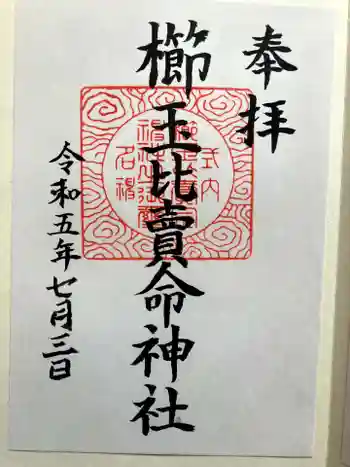 奉拝
櫛玉比賣命神社
令和五年七月三日
式内
名神